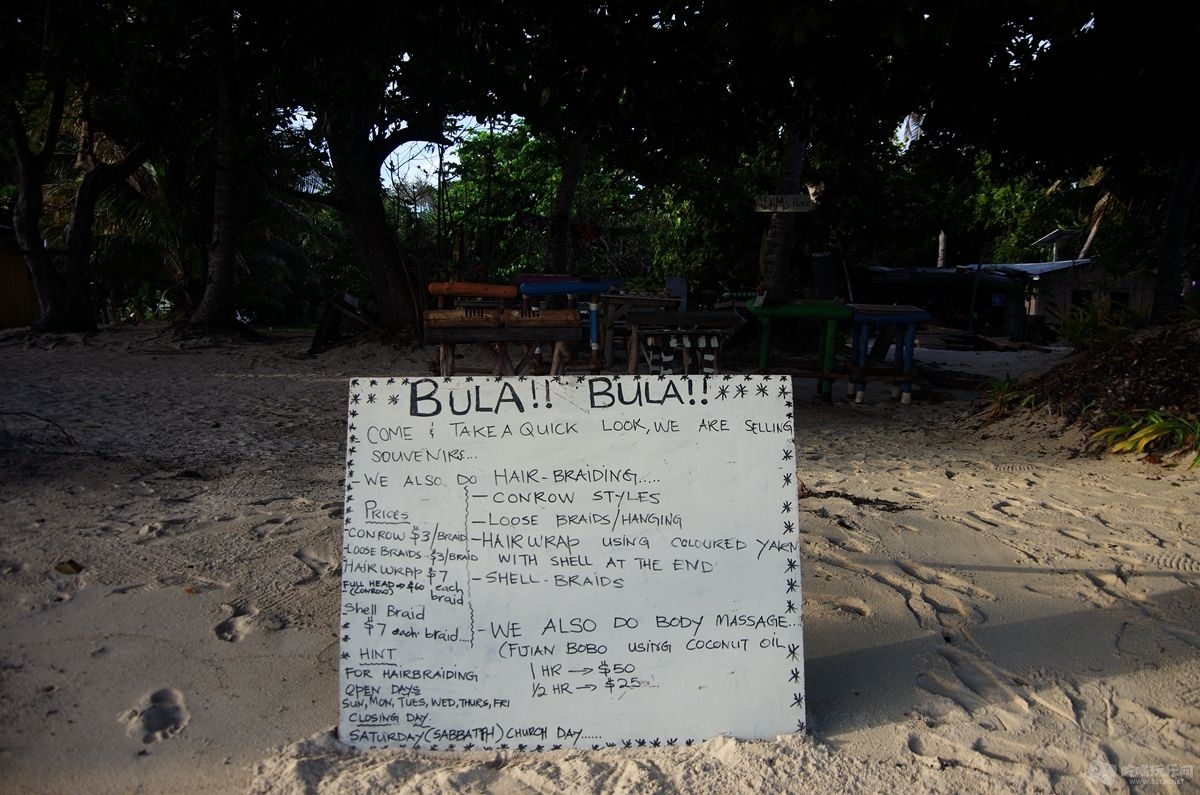 ADAMS PLACE
BULA!! BULA!!
COME & TAKE A QUICK LOOK, WE ARE SELLING
SOUVENIRS...
-WE ALSO DO HAIR-BRAIDING.....
-CONROW STYLES
-LOOSE BRAIDS/HANGING
-HAIRWRAP USING COLOURED YARN
WITH SHELL AT THE END
-SHELL-BRAIDS
PRICES
-CONROW $3/BRAID
LOOSE BRAIDS-$3/BRAID
HAIRWRAP $7
each
braid
FULL HEAD→$60
(CONROW)
Shell Braid
$7 each braid....
-WE ALSO DO BODY MASSAGE...
(FIJIAN BOBO USING COCONUT OIL
1 HR → $50
1/2 HR → $25....
HINT
FOR HAIRBRAIDING
OPEN DAYS
SUN, MON, TUES, WED, THURS, FRI
CLOSING DAY.
SATURDAY (SABBATH) CHURCH DAY.....
吃喝玩乐网